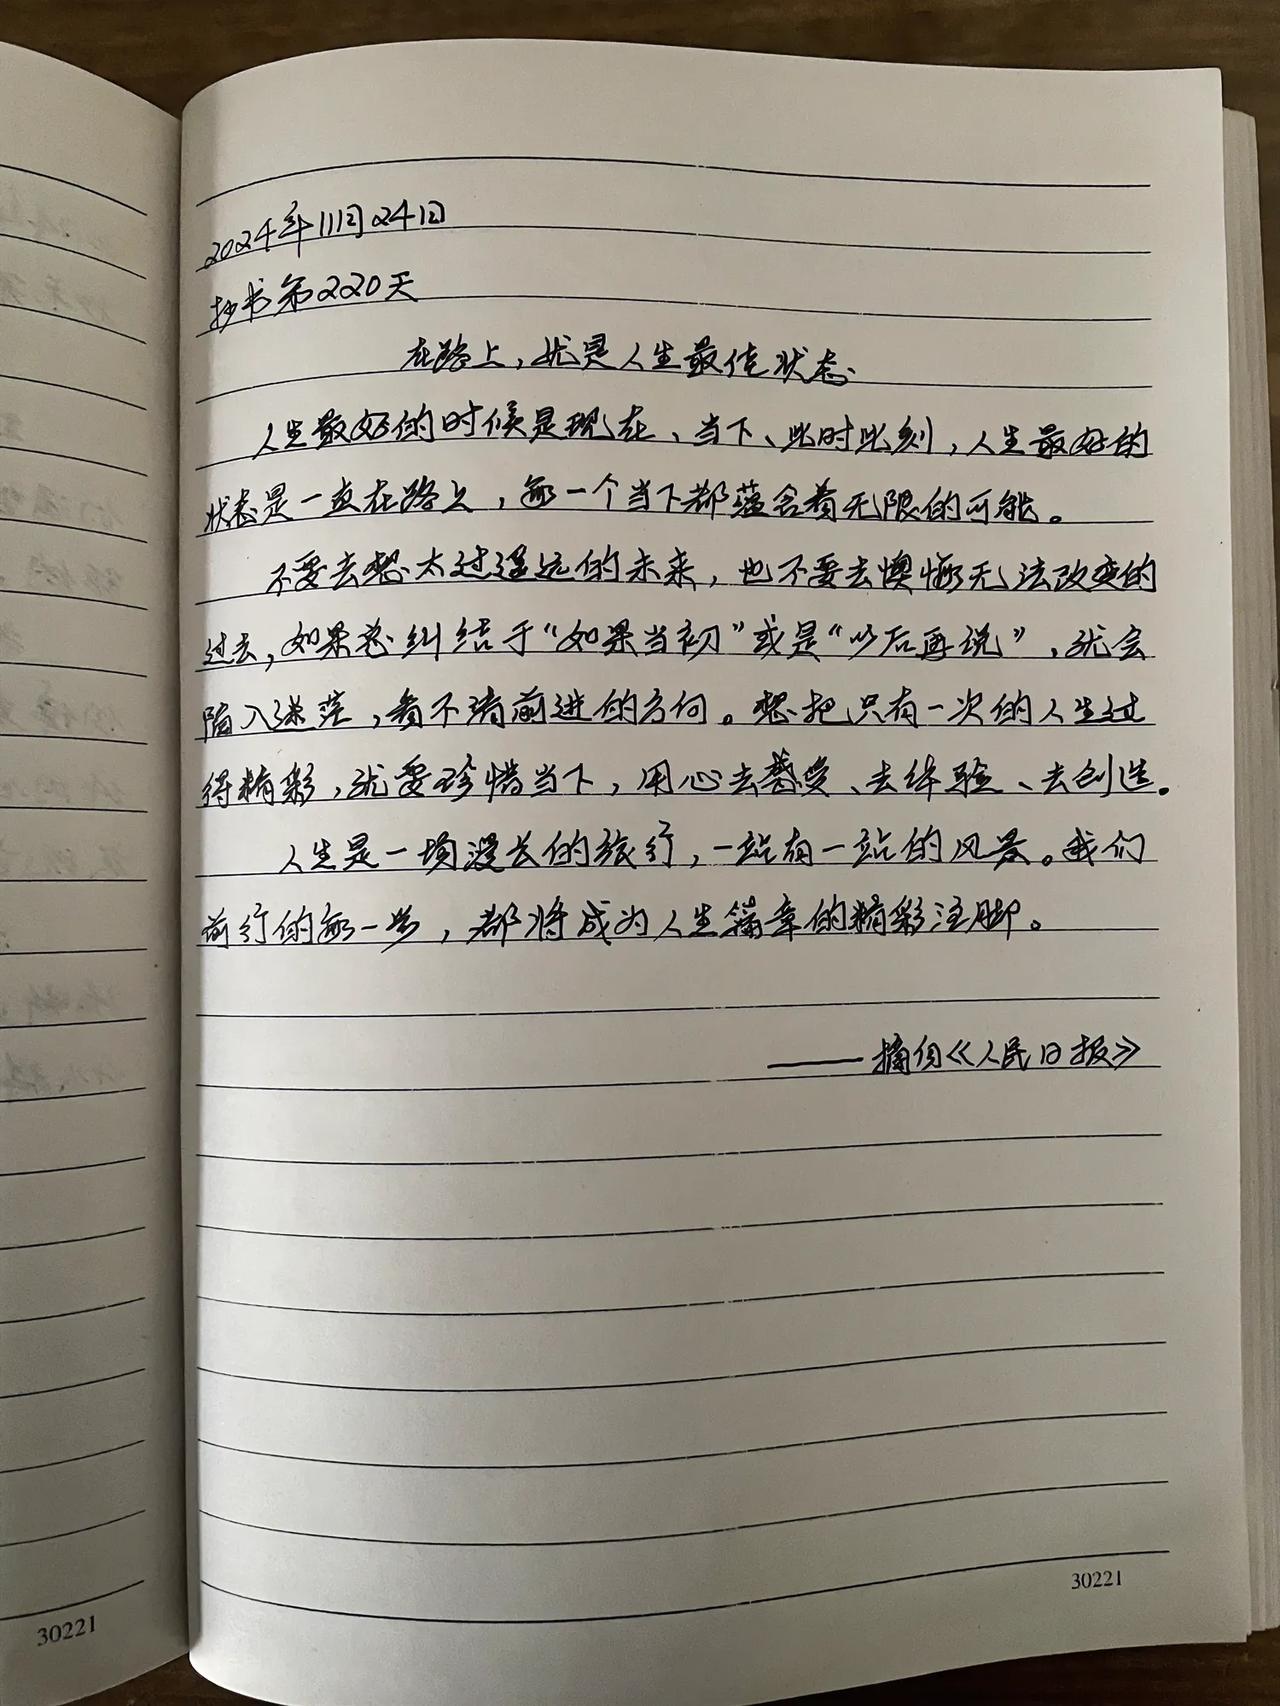 2024年11月24日
抄书第220天
在路上，就是人生最佳状态
人生最好的时候是现在、当下、此时此刻，人生最好的
状态是一直在路上，每一个当下都蕴含着无限的可能。
不要去想太过遥远的未来，也不要去懊悔无法改变的
过去，如果总纠结于“如果当初”或是“以后再说”，就会
陷入迷茫，看不清前进的方向。想把只有一次的人生过
得精彩，就要珍惜当下，用心去感受、去体验、去创造。
人生是一场漫长的旅行，一站有一站的风景。我们
前行的每一步，都将成为人生篇章的精彩注脚。
——摘自《人民日报》
30221
30221